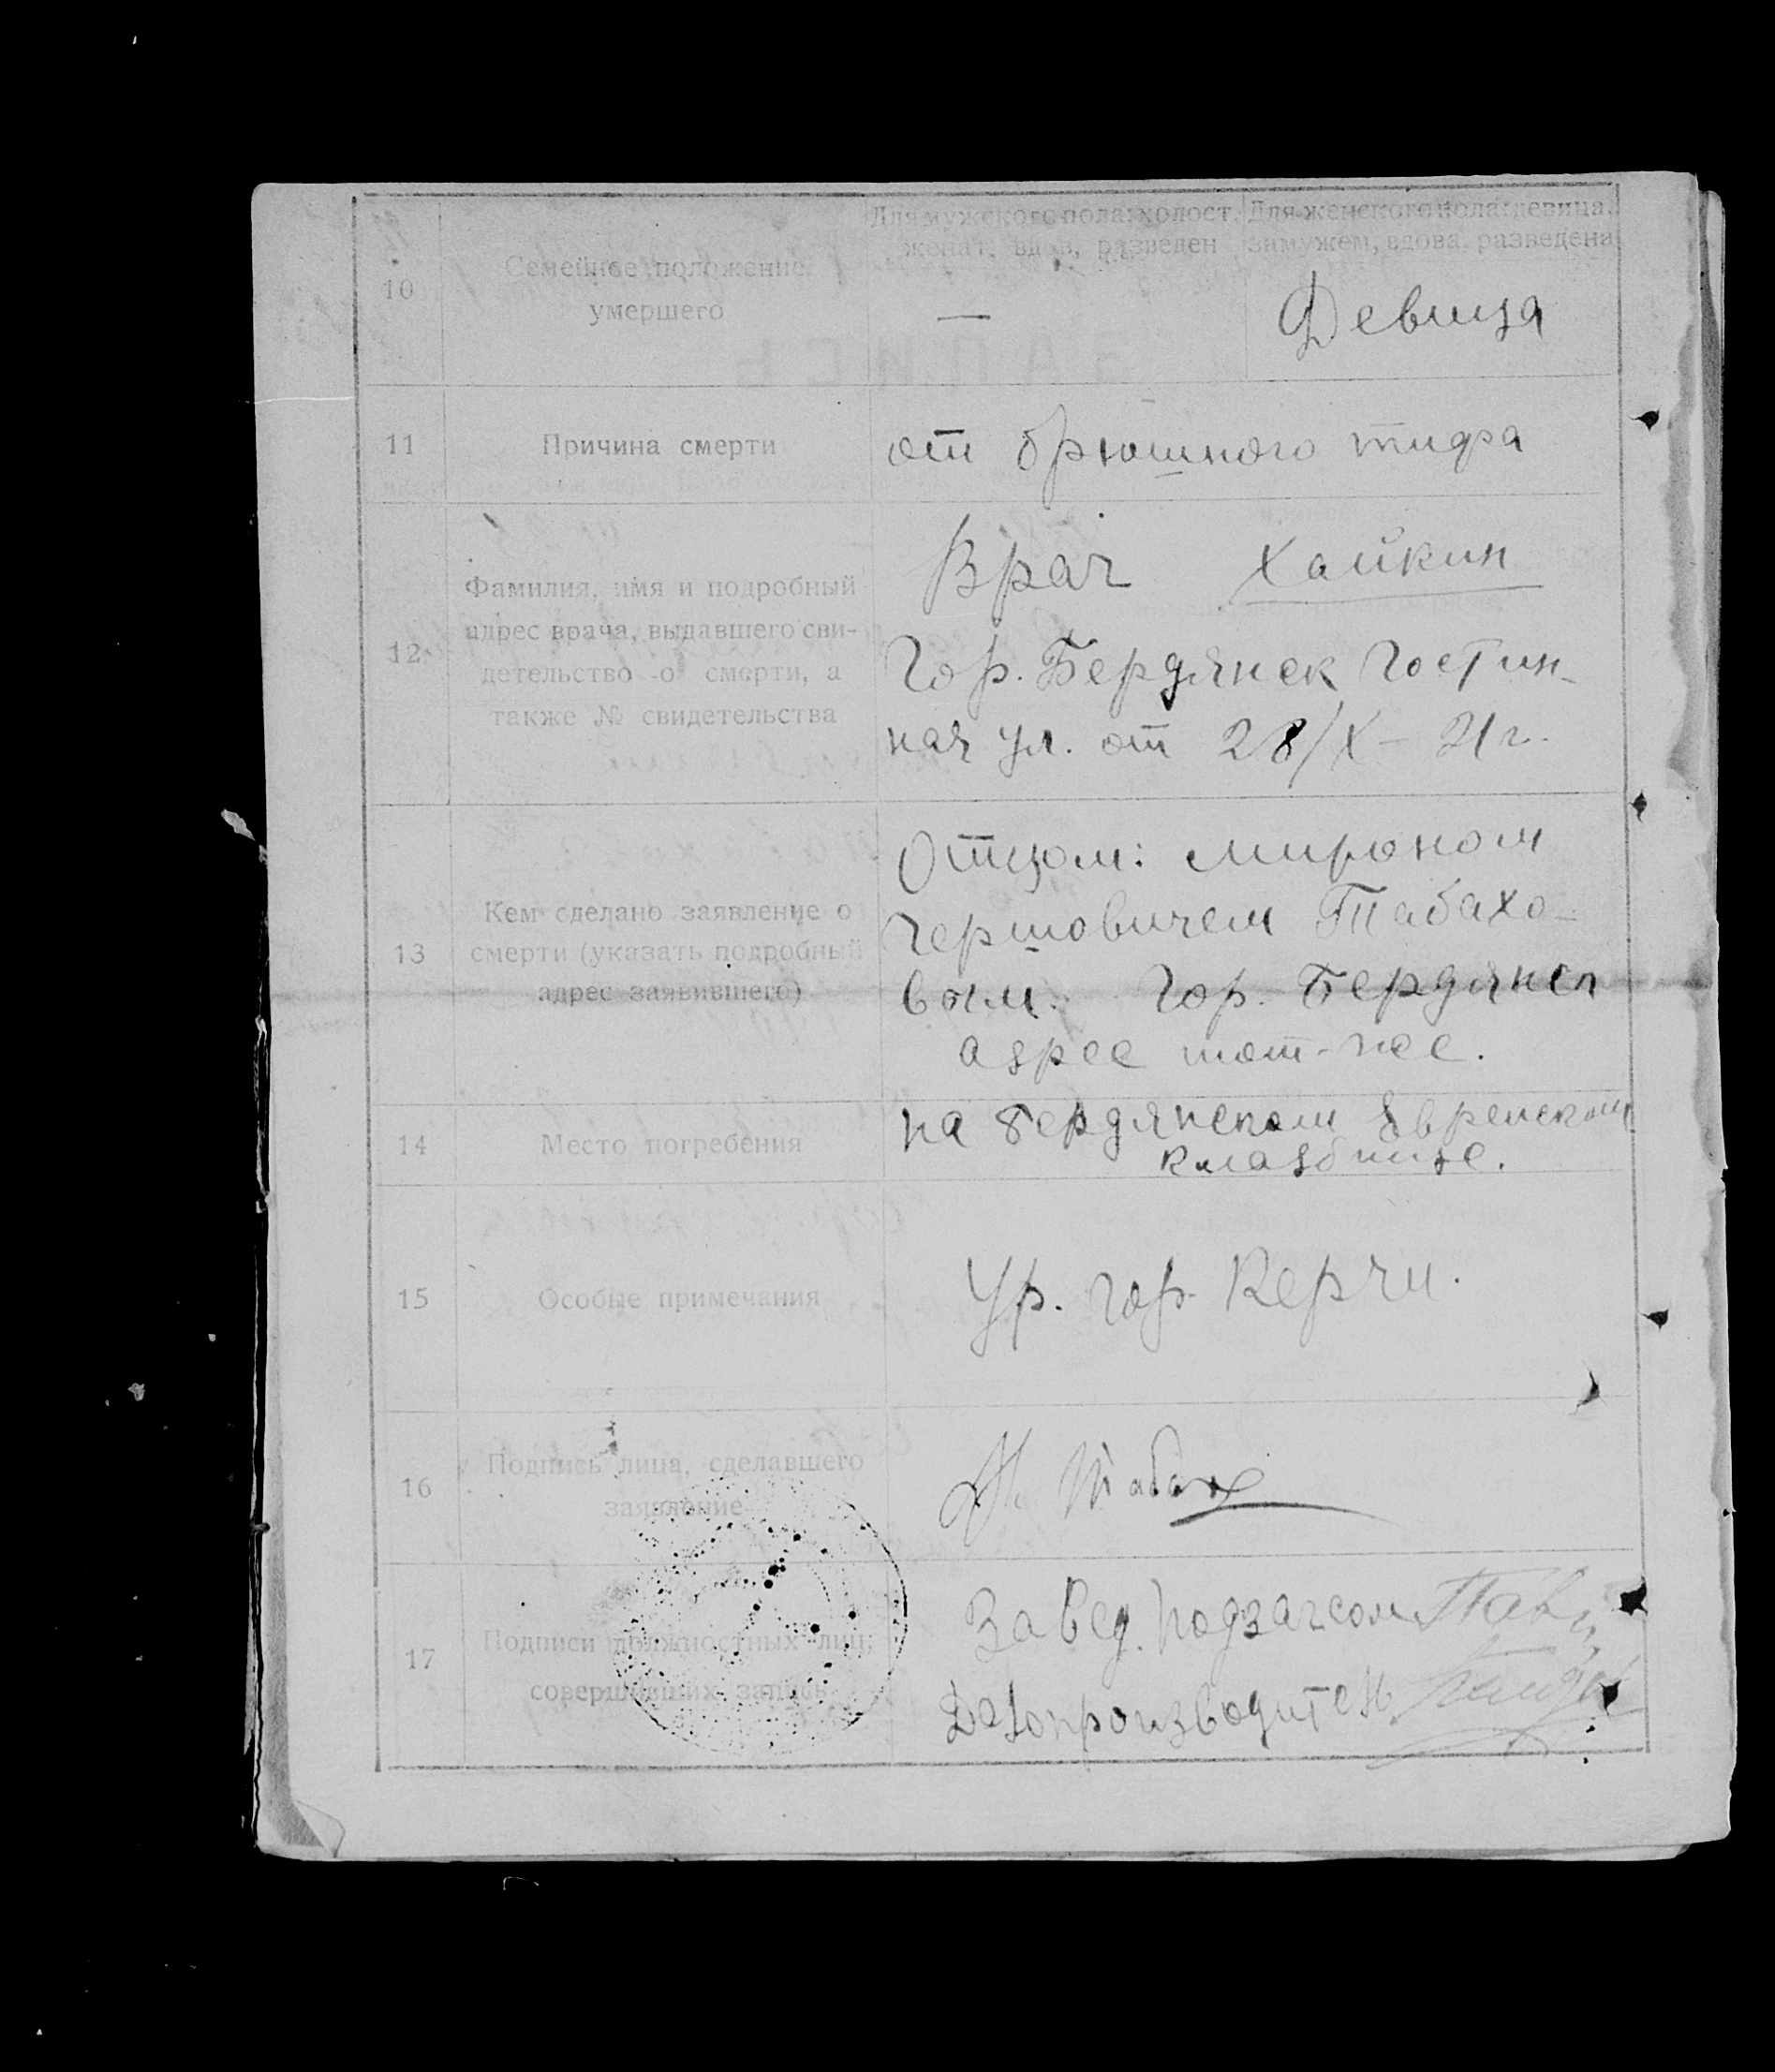 Для мужского пола: холост, женат, вдов, разведен
Для женского пола: девица, замужем, вдова, разведена
10
Семейное положение
умершего
—
Девица
11
Причина смерти
от брюшного тифа
12
Фамилия, имя и подробный
адрес врача, выдавшего сви-
детельство о смерти, а
также № свидетельства
Врач Хайкин
Гор. Бердянск Гостин-
ная ул. от 28/X – 21 г.
13
Кем сделано заявление о
смерти (указать подробный
адрес заявившего)
Отцом: Мироном
Гершовичем Табахо-
вым. Гор. Бердянск
адрес тот-же.
14
Место погребения
на Бердянском Еврейском
кладбище.
15
Особые примечания
Ур. гор. Керчи.
16
Подпись лица, сделавшего
заявление
М. Табах
17
Подписи должностных лиц,
совершивших запись
Завед. подзагсом
Делопроизводитель